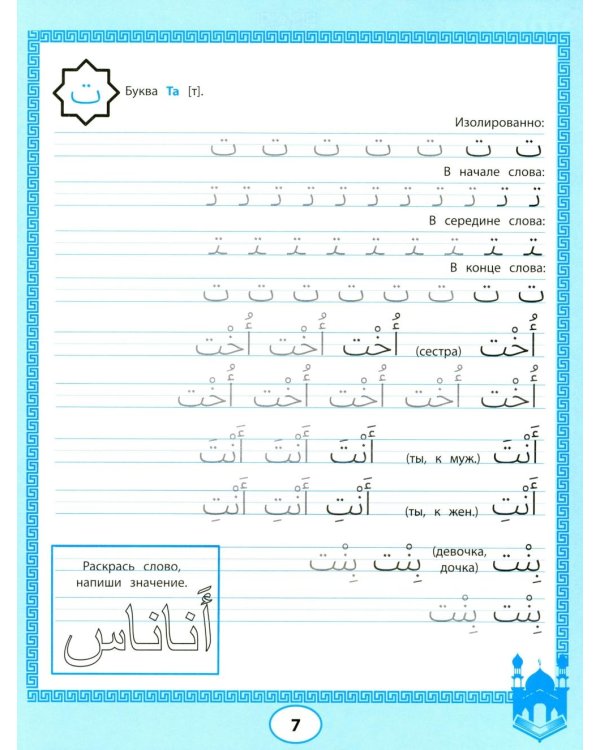 ت Буква Та [т].
Изолированно:
ت ت ت ت ت ت ت
В начале слова:
تـ تـ تـ تـ تـ تـ تـ تـ تـ تـ تـ
В середине слова:
ـتـ ـتـ ـتـ ـتـ ـتـ ـتـ ـتـ ـتـ ـتـ
В конце слова:
ـت ـت ـت ـت ـت ـت ـت ـت
أُخْت (сестра) أُخْت أُخْت أُخْت
أُخْت أُخْت أُخْت أُخْت أُخْت
أَنْتَ (ты, к муж.) أَنْتَ أَنْتَ أَنْتَ
أَنْتِ (ты, к жен.) أَنْتِ أَنْتِ أَنْتِ
بِنْت (девочка, дочка) بِنْت بِنْت
بِنْت بِنْت
Раскрась слово,
напиши значение.
أَناناس
7